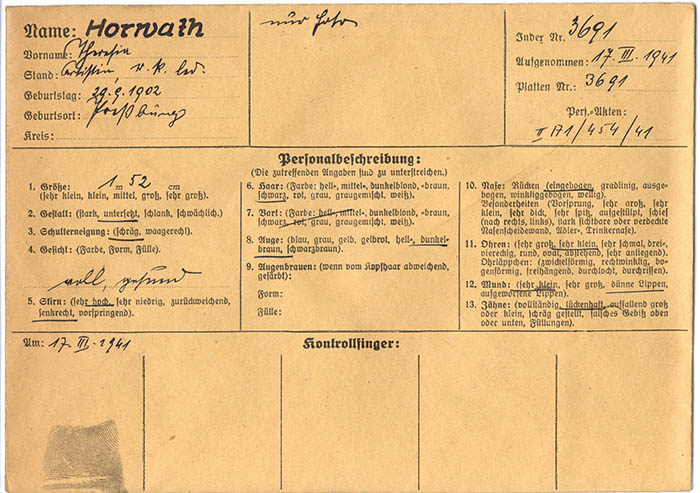 Name: Horwath
Vorname: Theresia
Stand: Artistin, r. k. led.
Geburtstag: 29.9.1902
Geburtsort: Preßburg
Kreis:
nur Foto
Index Nr. 3691
Aufgenommen: 17. III. 1941
Platten Nr.: 3691
Pers.-Akten:
II A1/454/41
Personalbeschreibung:
(Die zutreffenden Angaben sind zu unterstreichen.)
1. Größe: 1 m 52 cm
(sehr klein, klein, mittel, groß, sehr groß).
2. Gestalt: (stark, untersetzt, schlank, schwächlich).
3. Schulterneigung: (schräg, waagerecht).
4. Gesicht: (Farbe, Form, Fülle).
voll, gesund
5. Stirn: (sehr hoch, sehr niedrig, zurückweichend,
senkrecht, vorspringend).
6. Haar: (Farbe: hell-, mittel-, dunkelblond, -braun,
schwarz, rot, grau, graugemischt, weiß).
7. Bart: (Farbe: hell-, mittel-, dunkelblond, -braun,
schwarz, rot, grau, graugemischt, weiß).
8. Auge: (blau, grau, gelb, gelbrot, hell-, dunkel-
braun, schwarzbraun).
9. Augenbrauen: (wenn vom Kopfhaar abweichend,
gefärbt):
Form:
Fülle:
10. Nase: Rücken (eingebogen, gradlinig, ausge-
bogen, winkliggebogen, wellig).
Besonderheiten (Vorsprung, sehr groß, sehr
klein, sehr dick, sehr spitz, aufgestülpt, schief
(nach rechts, links), stark sichtbare oder verdeckte
Nasenscheidewand, Adler-, Trinkernase).
11. Ohren: (sehr groß, sehr klein, sehr schmal, drei-,
viereckig, rund, oval, abstehend, sehr anliegend).
Ohrläppchen: (zwickelförmig, rechtwinklig, bo-
genförmig, freihängend, durchlocht, durchrissen).
12. Mund: (sehr klein, sehr groß, dünne Lippen,
aufgeworfene Lippen).
13. Zähne: (vollständig, lückenhaft, auffallend groß
oder klein, schräg gestellt, falsches Gebiß oben
oder unten, Füllungen).
Am: 17. III. 1941
Kontrollfinger: